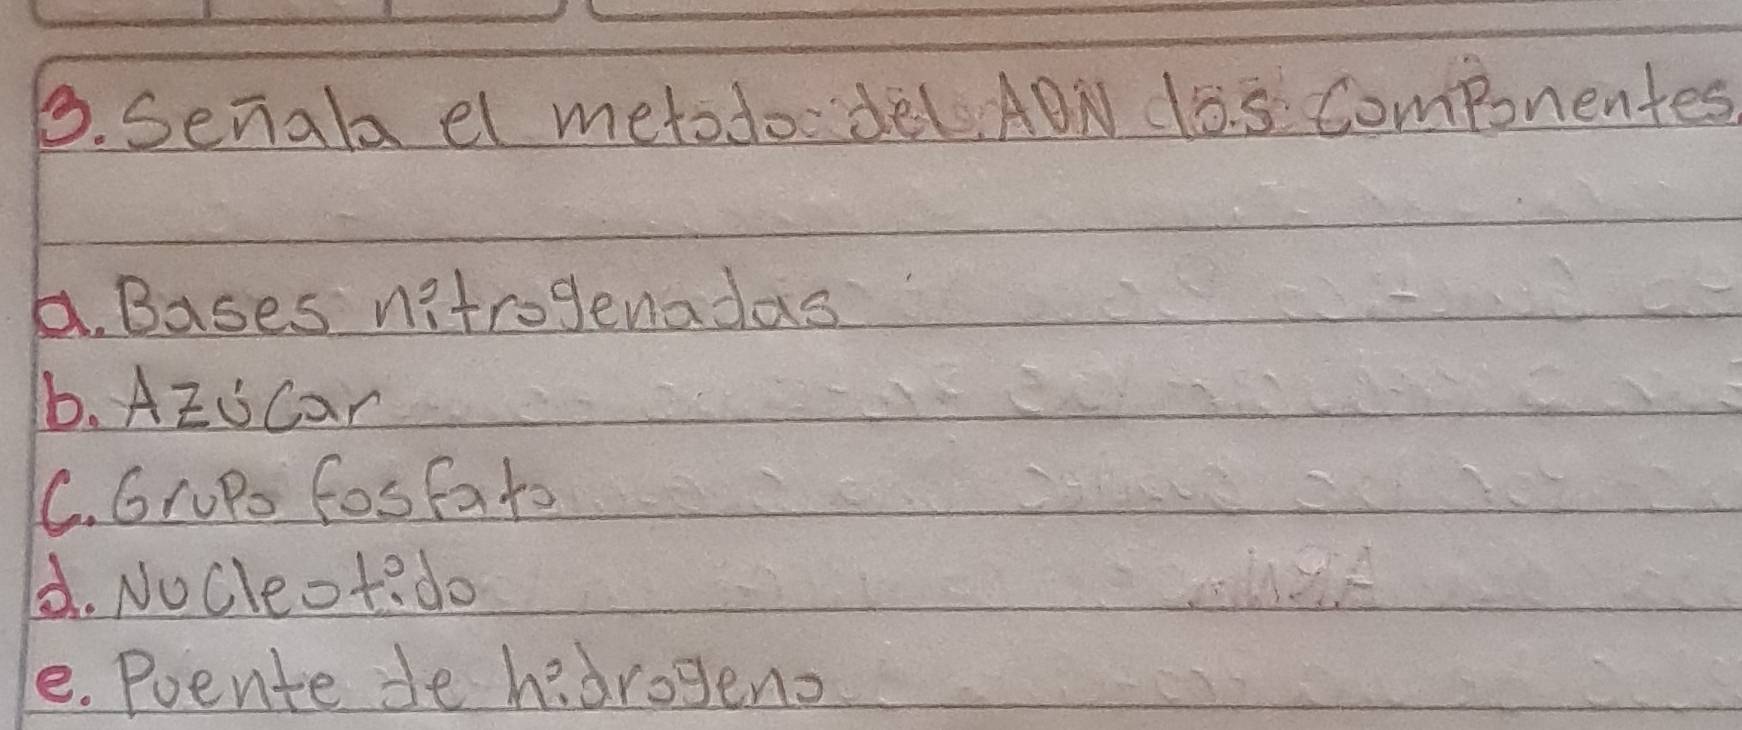 3. Señala el metodo del ADN los componentes.
a. Bases nitrogenadas
b. Azúcar
c. Grupo fosfato
d. Nucleotido
e. Puente de hidrogeno